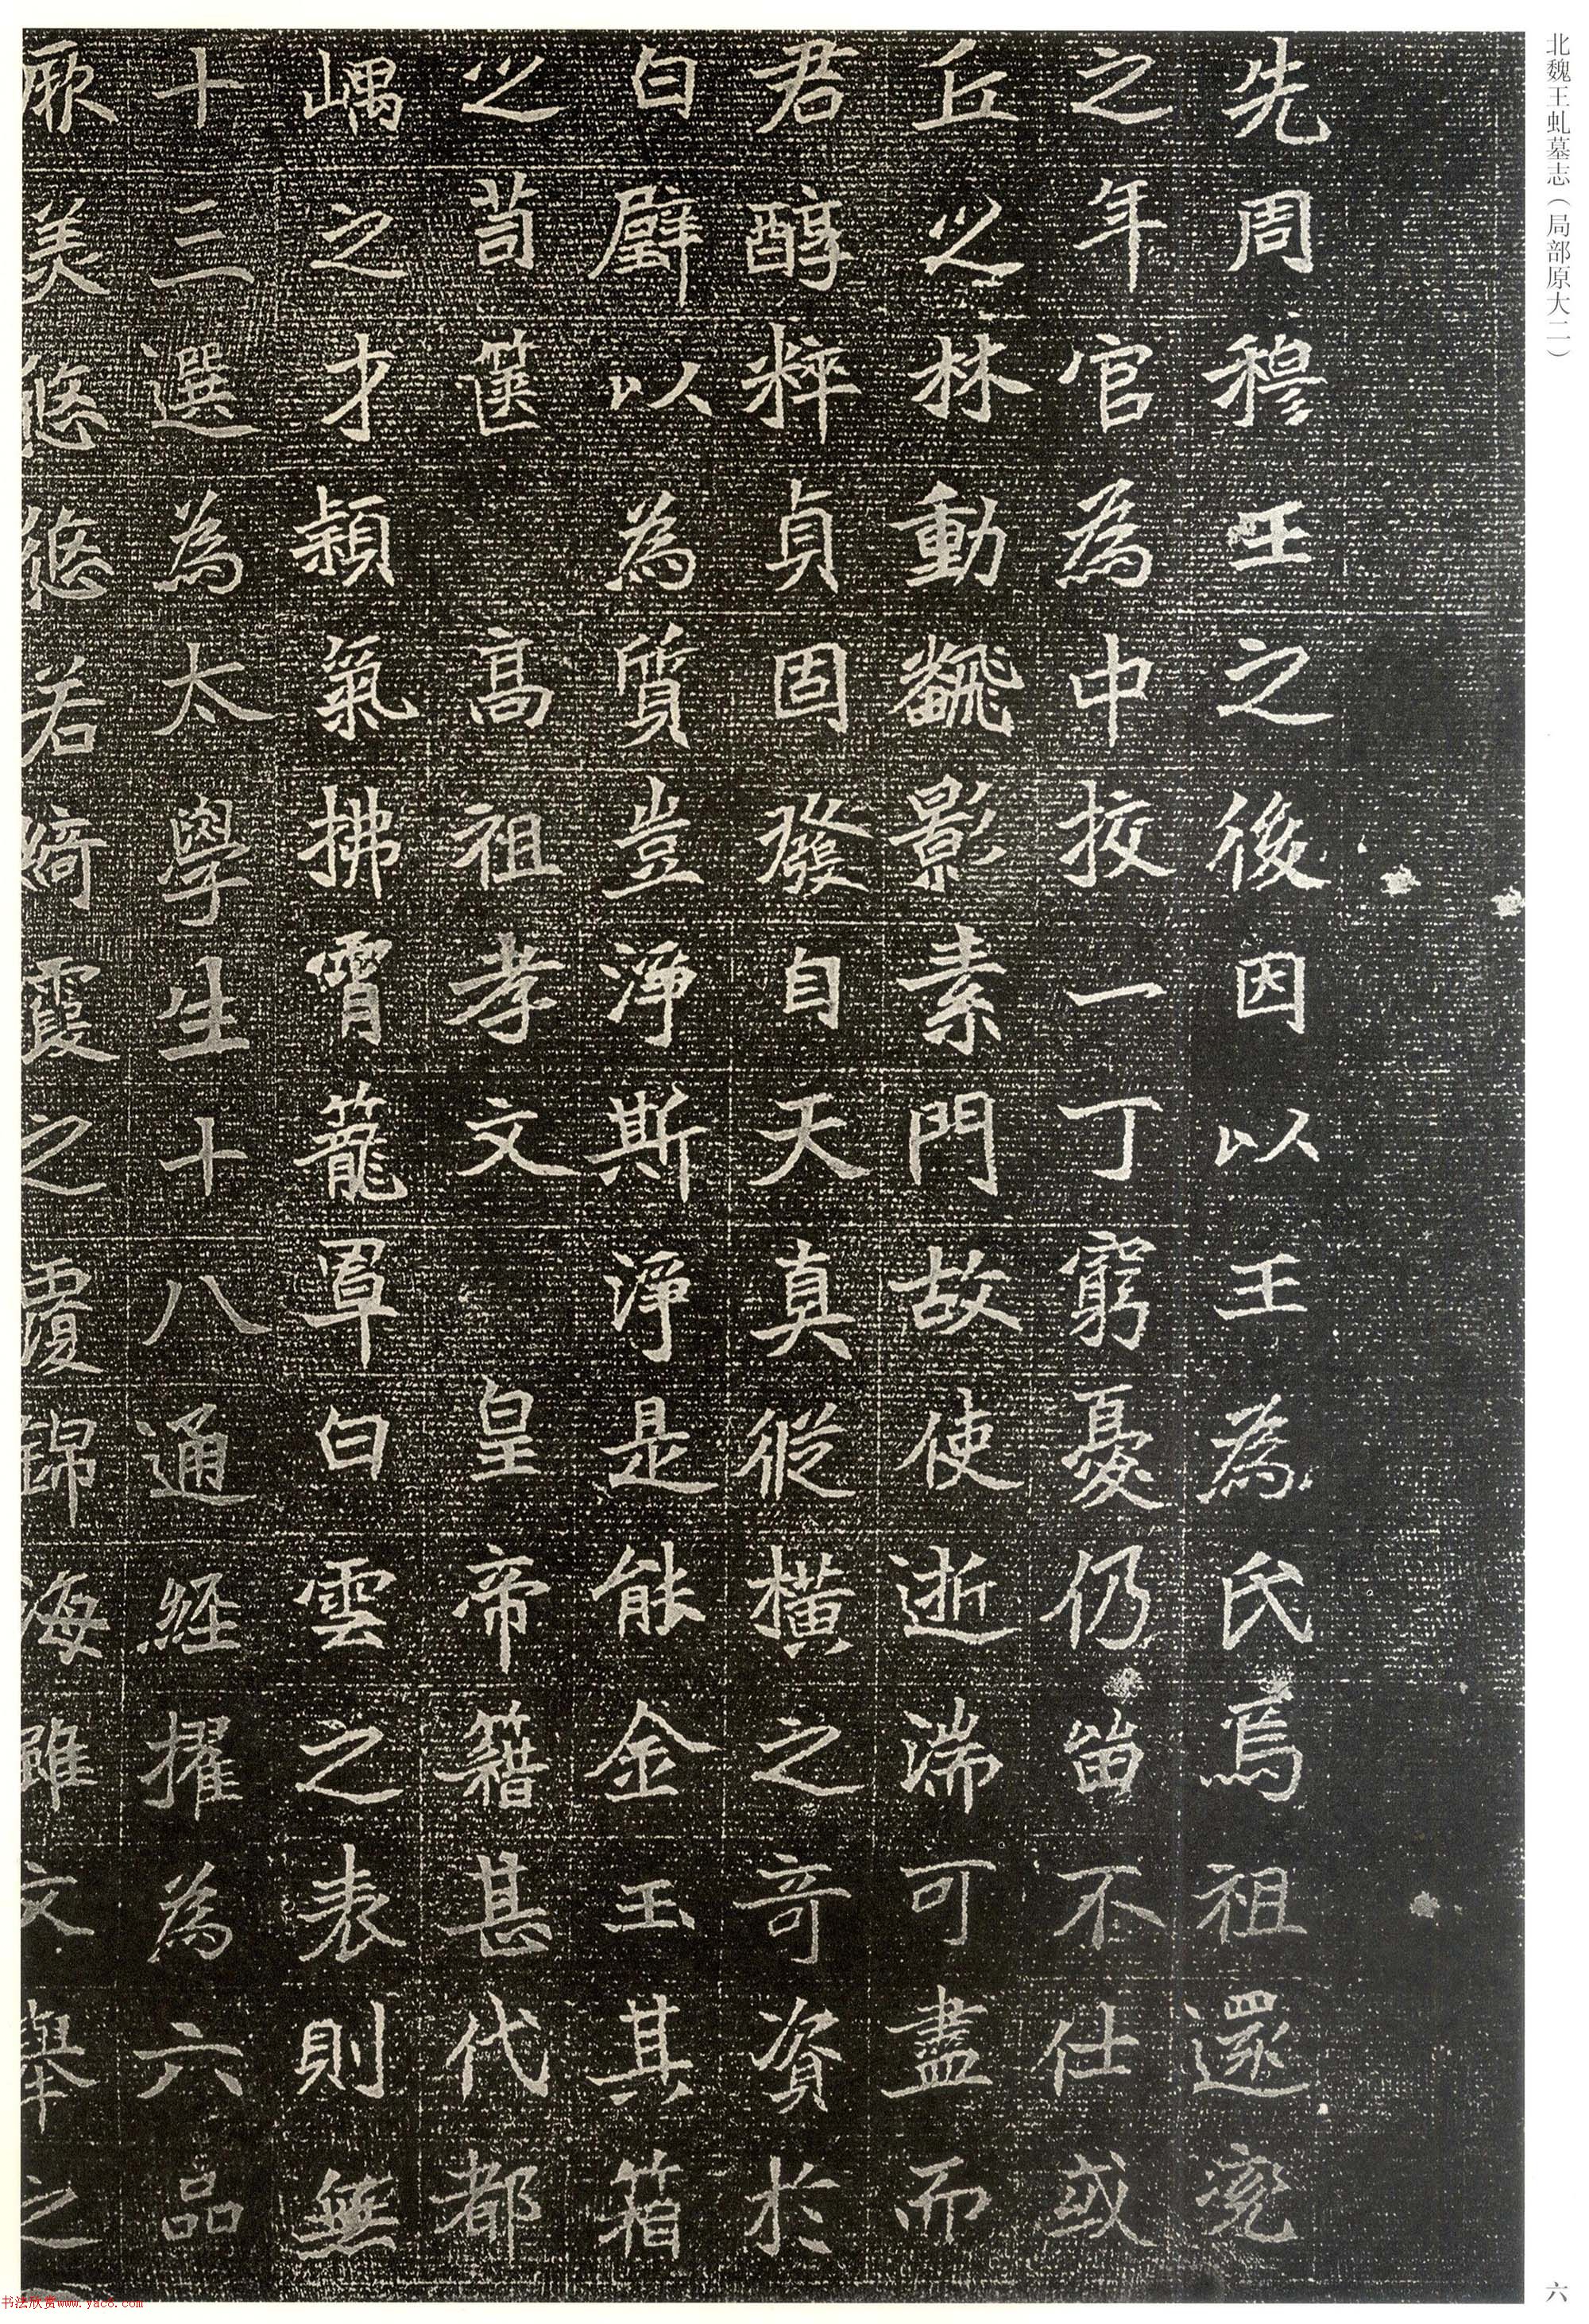 北魏王虬墓志（局部原大二）
先周穆王之後因以王為氏焉祖還兖
之年官為中挍一丁窮憂仍笛不仕或
丘之林動飜影素門故使逝湍可盡而
君醇粹貞固發自天真縱橫之奇資於
白璧以為質豈淨斯淨是能金玉其箱
之苟篋高祖孝文皇帝籍甚代都
嵎之才穎氣拂霄籠罩白雲之表則無
十三選為太學生十八通經擢為六品
厥美悠悠若綺霞之覆錦海雖文舉之
六
书法欣赏www.yac8.com